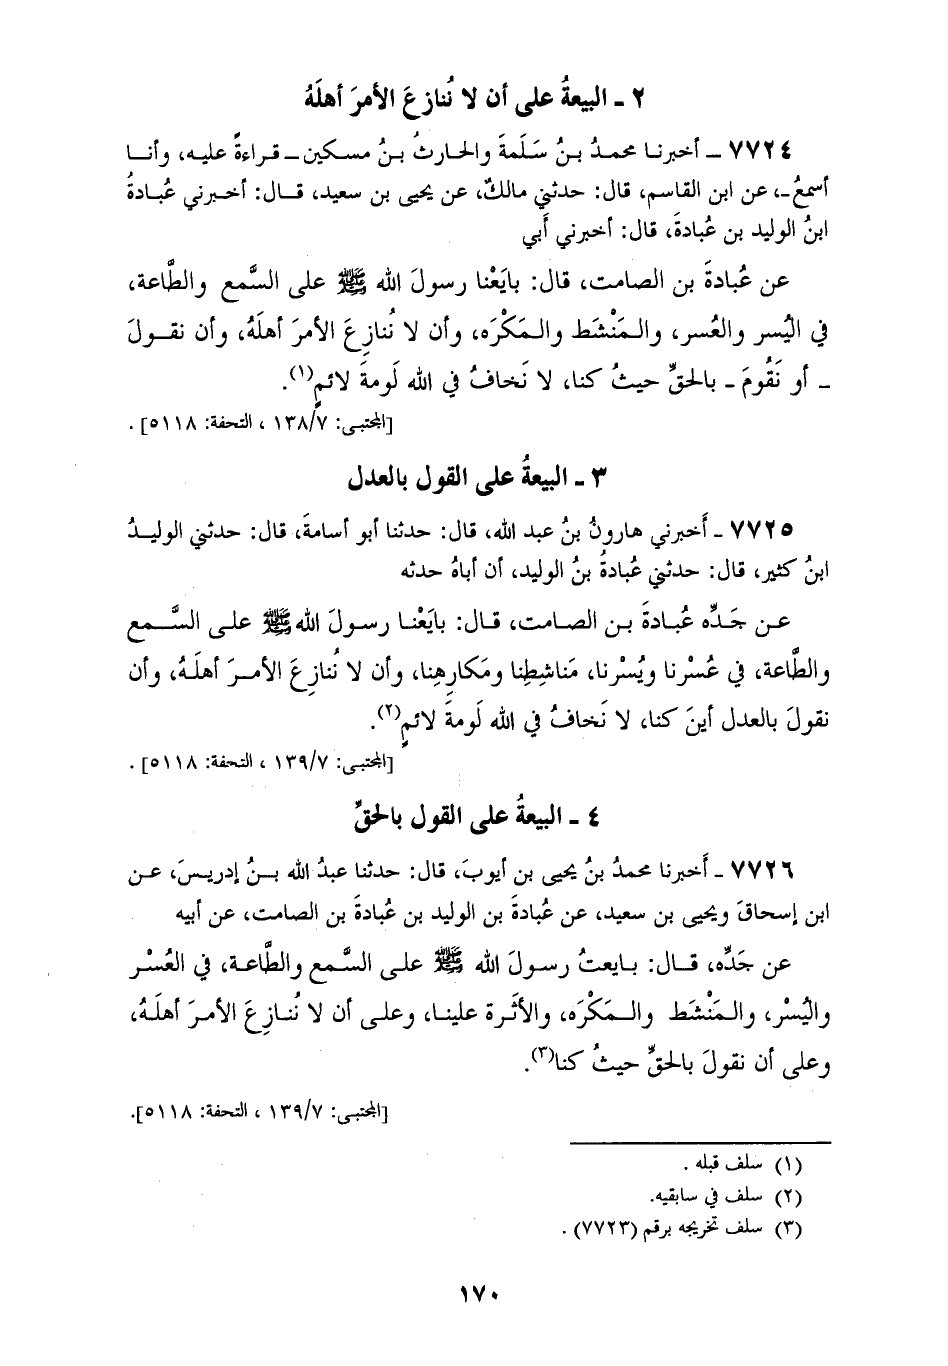 ٢ ـ البيعةُ على أن لا نُنازعَ الأمرَ أهلَهُ
٧٧٢٤ ـ أخبرنا محمدُ بنُ سَلَمةَ والحارثُ بنُ مسكين ـ قراءةً عليه، وأنا
أسمعُ ـ، عن ابن القاسم، قال: حدثني مالكٌ، عن يحيى بن سعيد، قال: أخبرني عُبادةُ
ابنُ الوليد بن عُبادةَ، قال: أخبرني أَبي
عن عُبادةَ بن الصامت، قال: بايَعْنا رسولَ الله ﷺ على السَّمع والطَّاعة،
في اليُسر والعُسر، والمَنْشَط والمَكْرَه، وأن لا نُنازِعَ الأمرَ أهلَهُ، وأن نقولَ
ـ أو نَقُومَ ـ بالحقِّ حيثُ كنا، لا نَخافُ في الله لَومةَ لائمٍ(١).
[المجتبى: ١٣٨/٧ ، التحفة: ٥١١٨] .
٣ ـ البيعةُ على القول بالعدل
٧٧٢٥ ـ أَخبرني هارونُ بنُ عبد الله، قال: حدثنا أبو أسامةَ، قال: حدثني الوليدُ
ابنُ كثير، قال: حدثني عُبادةُ بنُ الوليد، أن أباهُ حدثه
عن جَدِّه عُبادةَ بن الصامت، قال: بايَعْنا رسولَ الله ﷺ على السَّمع
والطَّاعة، في عُسْرنا ويُسْرنا، مَناشِطِنا ومَكارِهِنا، وأن لا نُنازِعَ الأمرَ أهلَهُ، وأن
نقولَ بالعدل أينَ كنا، لا نَخافُ في الله لَومةَ لائمٍ(٢).
[المجتبى: ١٣٩/٧ ، التحفة: ٥١١٨] .
٤ ـ البيعةُ على القول بالحقِّ
٧٧٢٦ ـ أَخبرنا محمدُ بنُ يحيى بن أيوبَ، قال: حدثنا عبدُ الله بنُ إدريسَ، عن
ابن إسحاقَ ويحيى بن سعيد، عن عُبادةَ بن الوليد بن عُبادةَ بن الصامت، عن أبيه
عن جَدِّه، قال: بايعتُ رسولَ الله ﷺ على السَّمع والطَّاعة، في العُسْر
واليُسْر، والمَنْشَط والمَكْرَه، والأثَرة علينا، وعلى أن لا نُنازِعَ الأمرَ أهلَهُ،
وعلى أن نقولَ بالحقِّ حيثُ كنا(٣).
[المجتبى: ١٣٩/٧ ، التحفة: ٥١١٨].
(١) سلف قبله .
(٢) سلف في سابقيه.
(٣) سلف تخريجه برقم (٧٧٢٣) .
١٧٠